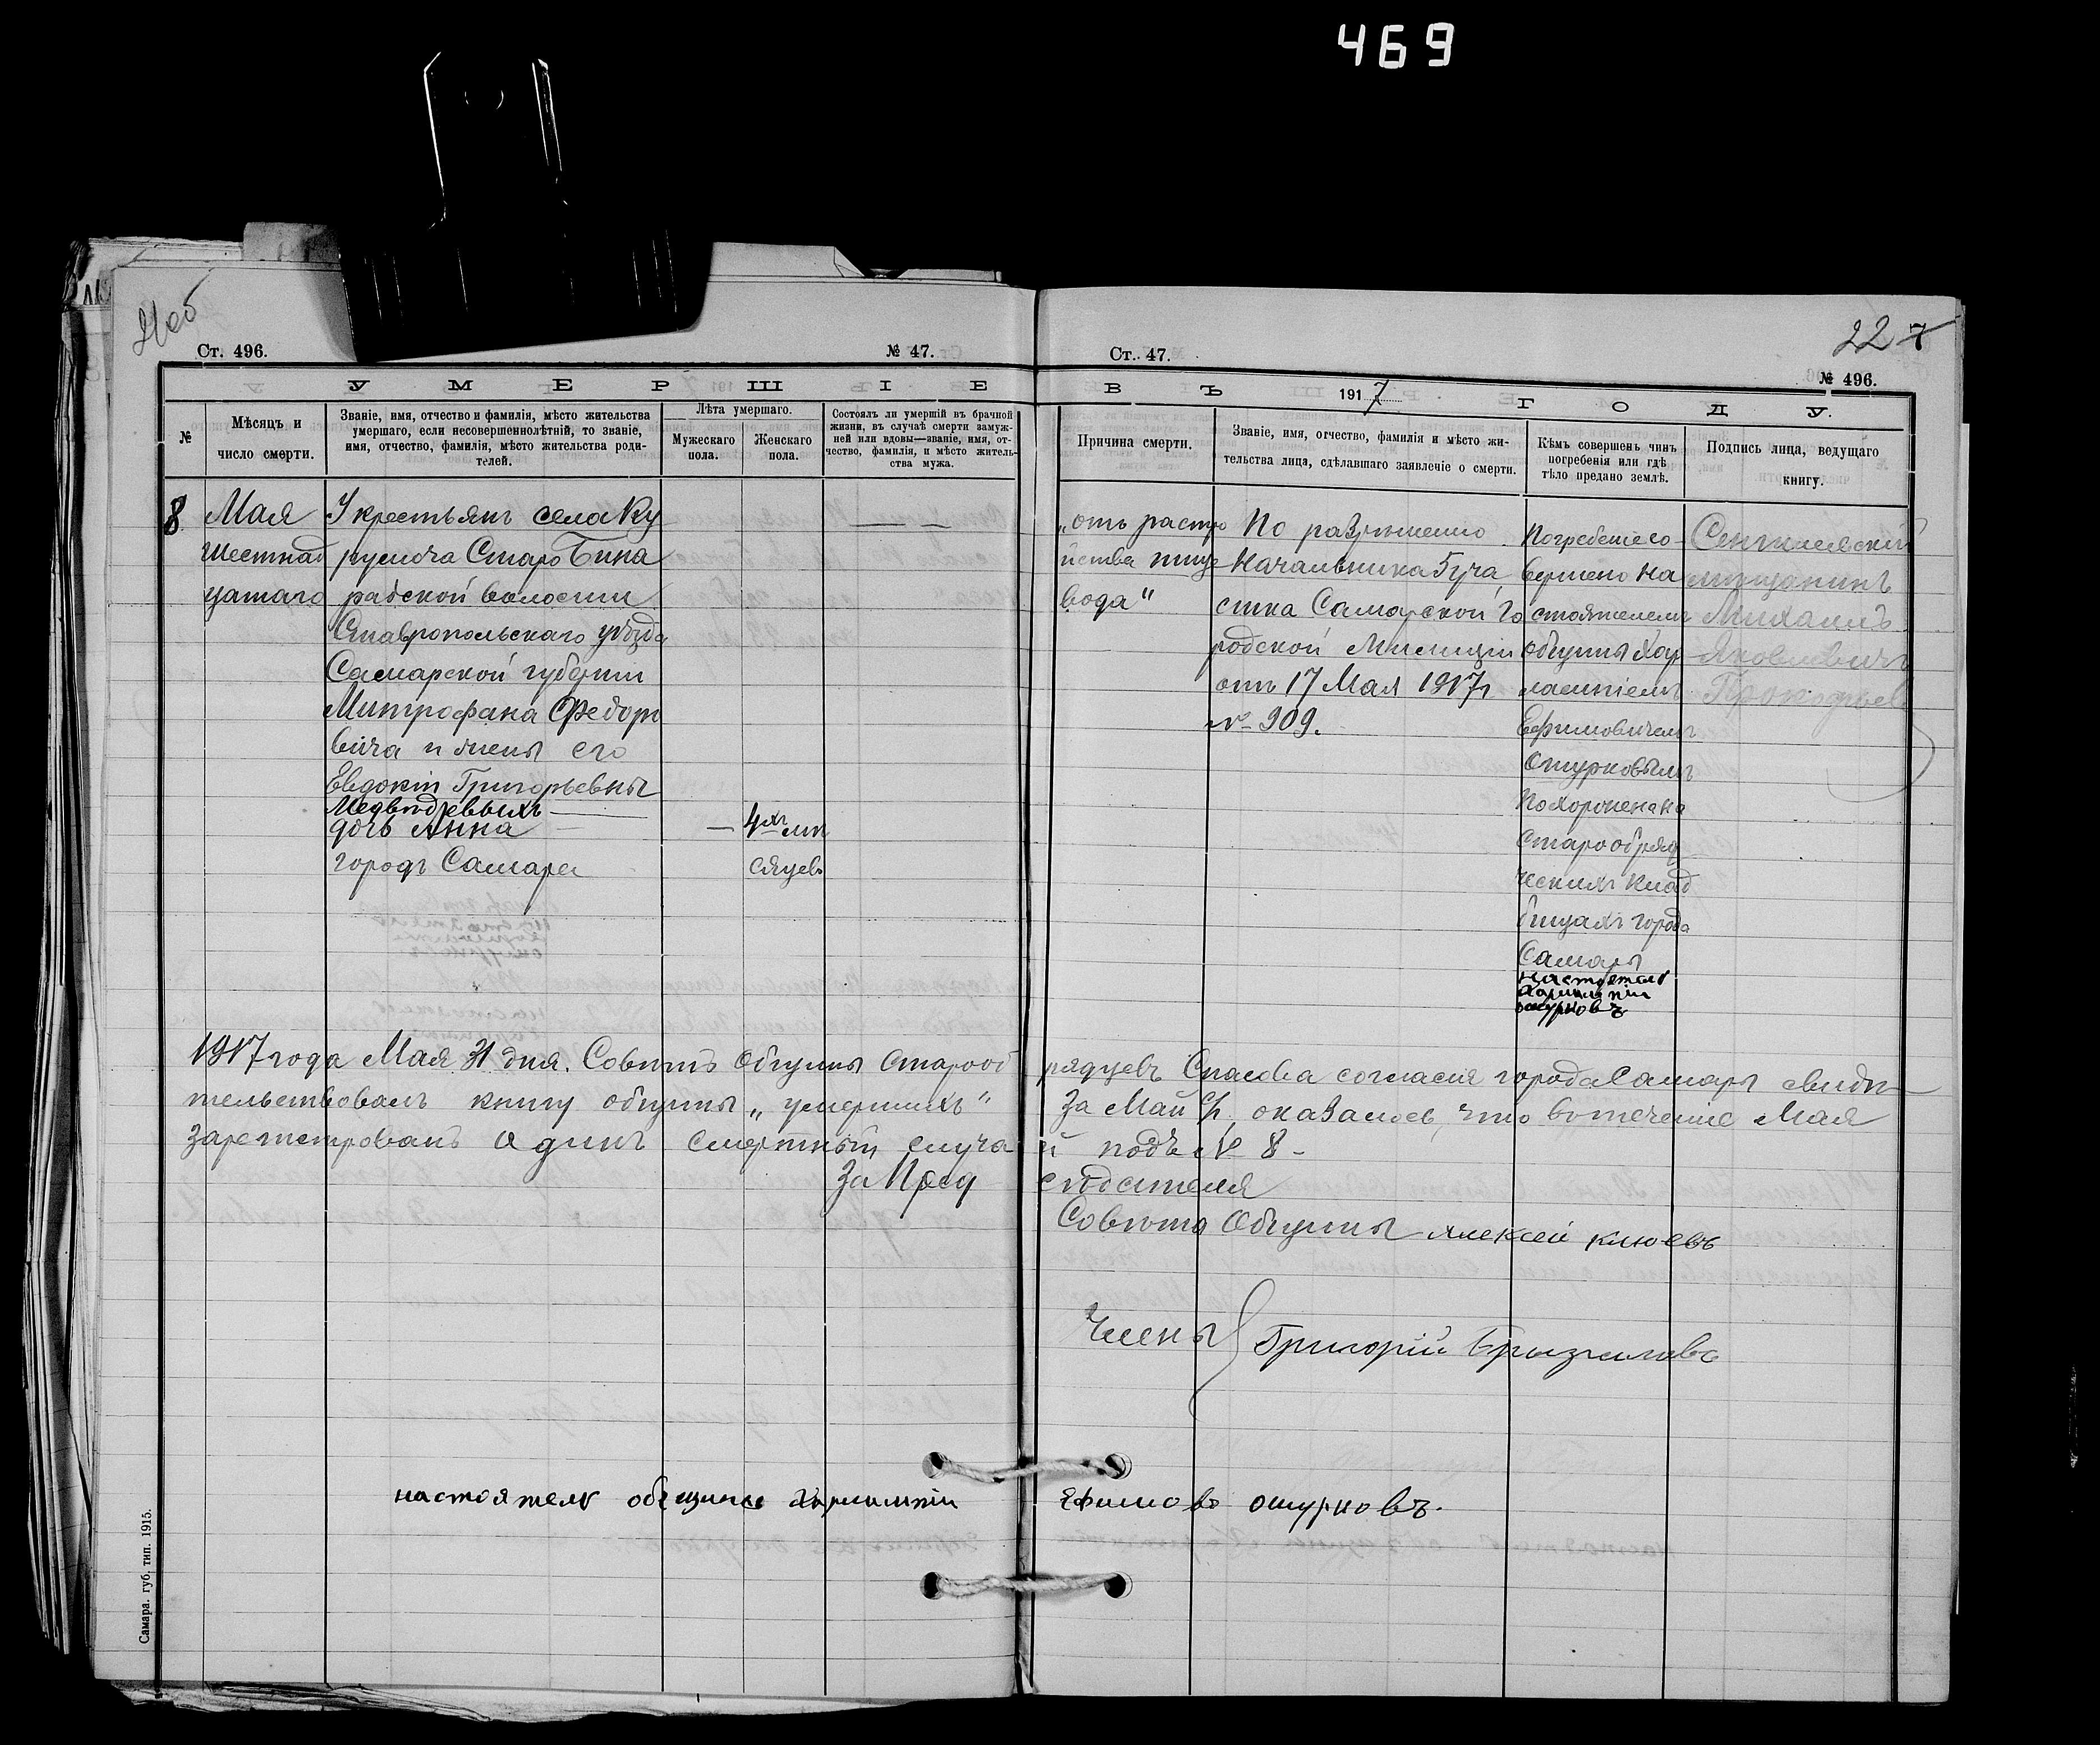 469
22 7
Ст. 496.
№ 47.
Ст. 47.
№ 496.
УМЕРШІЕ
ВЪ 1917 ГОДУ.
№
Мѣсяцъ и
число смерти.
Званіе, имя, отчество и фамилія, мѣсто жительства
умершаго, если несовершеннолѣтній, то званіе,
имя, отчество, фамилія, мѣсто жительства роди-
телей.
Лѣта умершаго.
Мужескаго
пола.
Женскаго
пола.
Состоялъ ли умершій въ брачной
жизни, въ случаѣ смерти замуж-
ней или вдовы—званіе, имя, от-
чество, фамилія, и мѣсто житель-
ства мужа.
Причина смерти.
Званіе, имя, отчество, фамилія и мѣсто жи-
тельства лица, сдѣлавшаго заявленіе о смерти.
Кѣмъ совершенъ чинъ
погребенія или гдѣ
тѣло предано землѣ.
Подпись лица, ведущаго
книгу.
8
Мая
шестнад
цатаго
У крестьянъ села Ку
румоча Старо Бина
радской волости
Ставропольскаго уѣзда
Самарской губерніи
Митрофана Федоро
вича и жены его
Евдокіи Григорьевны
Медвѣдевыхъ —
дочь Анна
городъ Самара
— 4хъ мѣ
сяцевъ
— —
„отъ растро
йства пище
вода"
По разрѣшенію
Начальника 5 уча
стка Самарской го
родской Милиціи
отъ 17 Мая 1917 г
№ 909.
Погребеніе со
вершено на
стоятелемъ
общины Хар
лампіемъ
Ефимовичемъ
Ошурковымъ
Похоронена на
старообряд
ческихъ клад
бищахъ города
Самары
настоятель
Харлампіи
ошурковъ
Сенгилеевскій
мѣщанинъ
Михаилъ
Яковлевичъ
Прокофьевъ
1917 года Мая 31 дня. Совѣтъ Общины Старооб рядцевъ Спасова согласія города Самары свидѣ
тельствовалъ книгу общины „умершихъ" За Май с/г, оказалось, что въ теченіе Мая
зарегистрованъ один смертный случа й подъ № 8 -
За Пред сѣдателя
Совѣта Общины Алексей Клюевъ
Члены Григорій
настоятель общины Харлампіи Ефимовъ ошурковъ.
Самара. губ. тип. 1915.